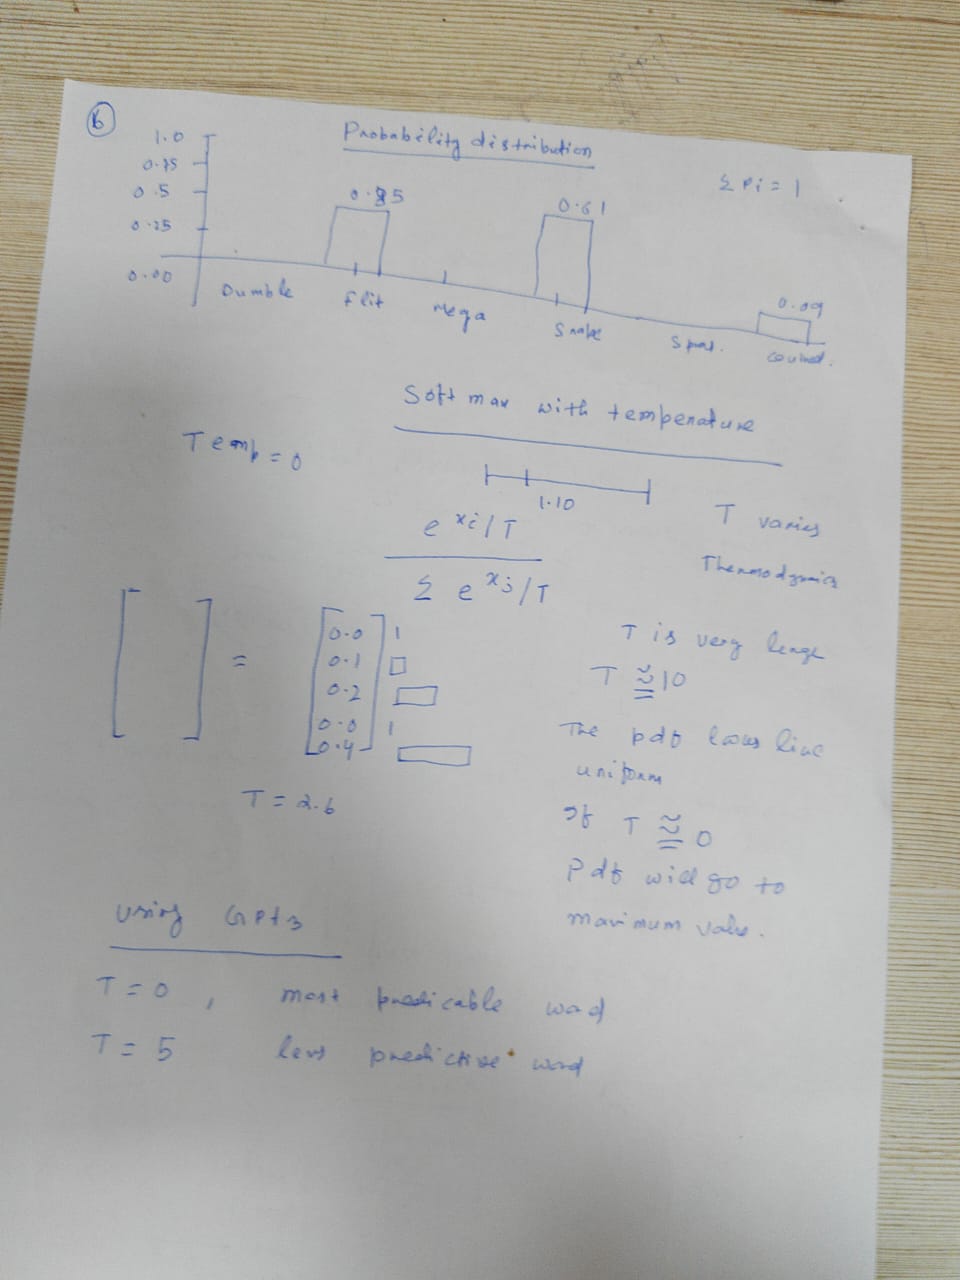 6
Probability distribution
Σ Pi = 1
1.0
0.75
0.5
0.25
0.00
0.85
0.61
0.09
Dumble
flit
Mega
Snake
Soft max with temperature
Temp = 0
1.10
T varies
Thermodynamics
e^xi/T
Σ e^xj/T
T is very large
T ≅ 10
The pdf looks like
uniform
If T ≅ 0
Pdf will go to
maximum value.
=
0.0
0.1
0.2
0.0
0.4
T = 2.6
using GPt3
T = 0 , most predicable word
T = 5 less predictive word